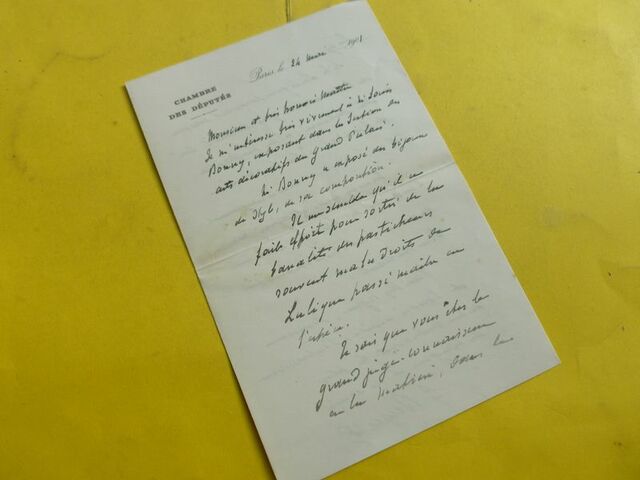 CHAMBRE
DES DÉPUTÉS
Paris le 24 mai 1901
Monsieur et très honoré Maître
Je m'intéresse très vivement à M. Louis
Bonny, exposant dans la Section des
arts décoratifs du Grand Palais.
M. Bonny a exposé des bijoux
de style, de sa composition.
Il me semble qu'il a
fait effort pour sortir de la
banalité des pasticheurs
souvent maladroits de
Lalique passé maître en
l'espèce.
Je sais que vous êtes le
grand juge connaisseur
en la matière, dans le